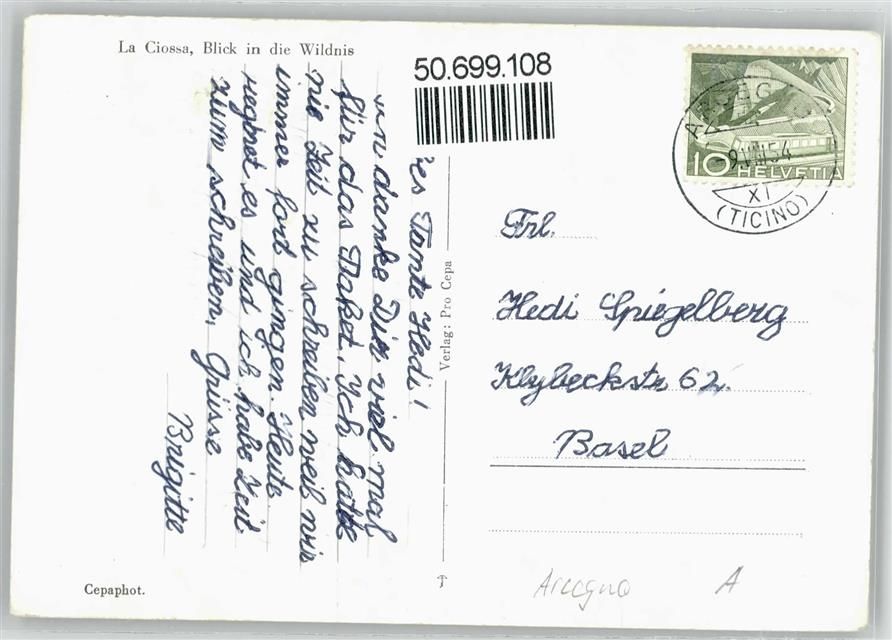 La Ciossa, Blick in die Wildnis
50.699.108
res Tante Hedi!
danke Dir viel mal
für das Paket. Ich hatte
nie Zeit zu schreiben weil wir
immer fort gingen. Heute
regnet es und ich habe Zeit
zum schreiben, Grüsse
Brigitte
Verlag: Pro Cepa
10 HELVETIA
9.VIII.54
XI
(TICINO)
Frl.
Hedi Spiegelberg
Klybeckstr 62.
Basel
Cepaphot.
Arcegno
A